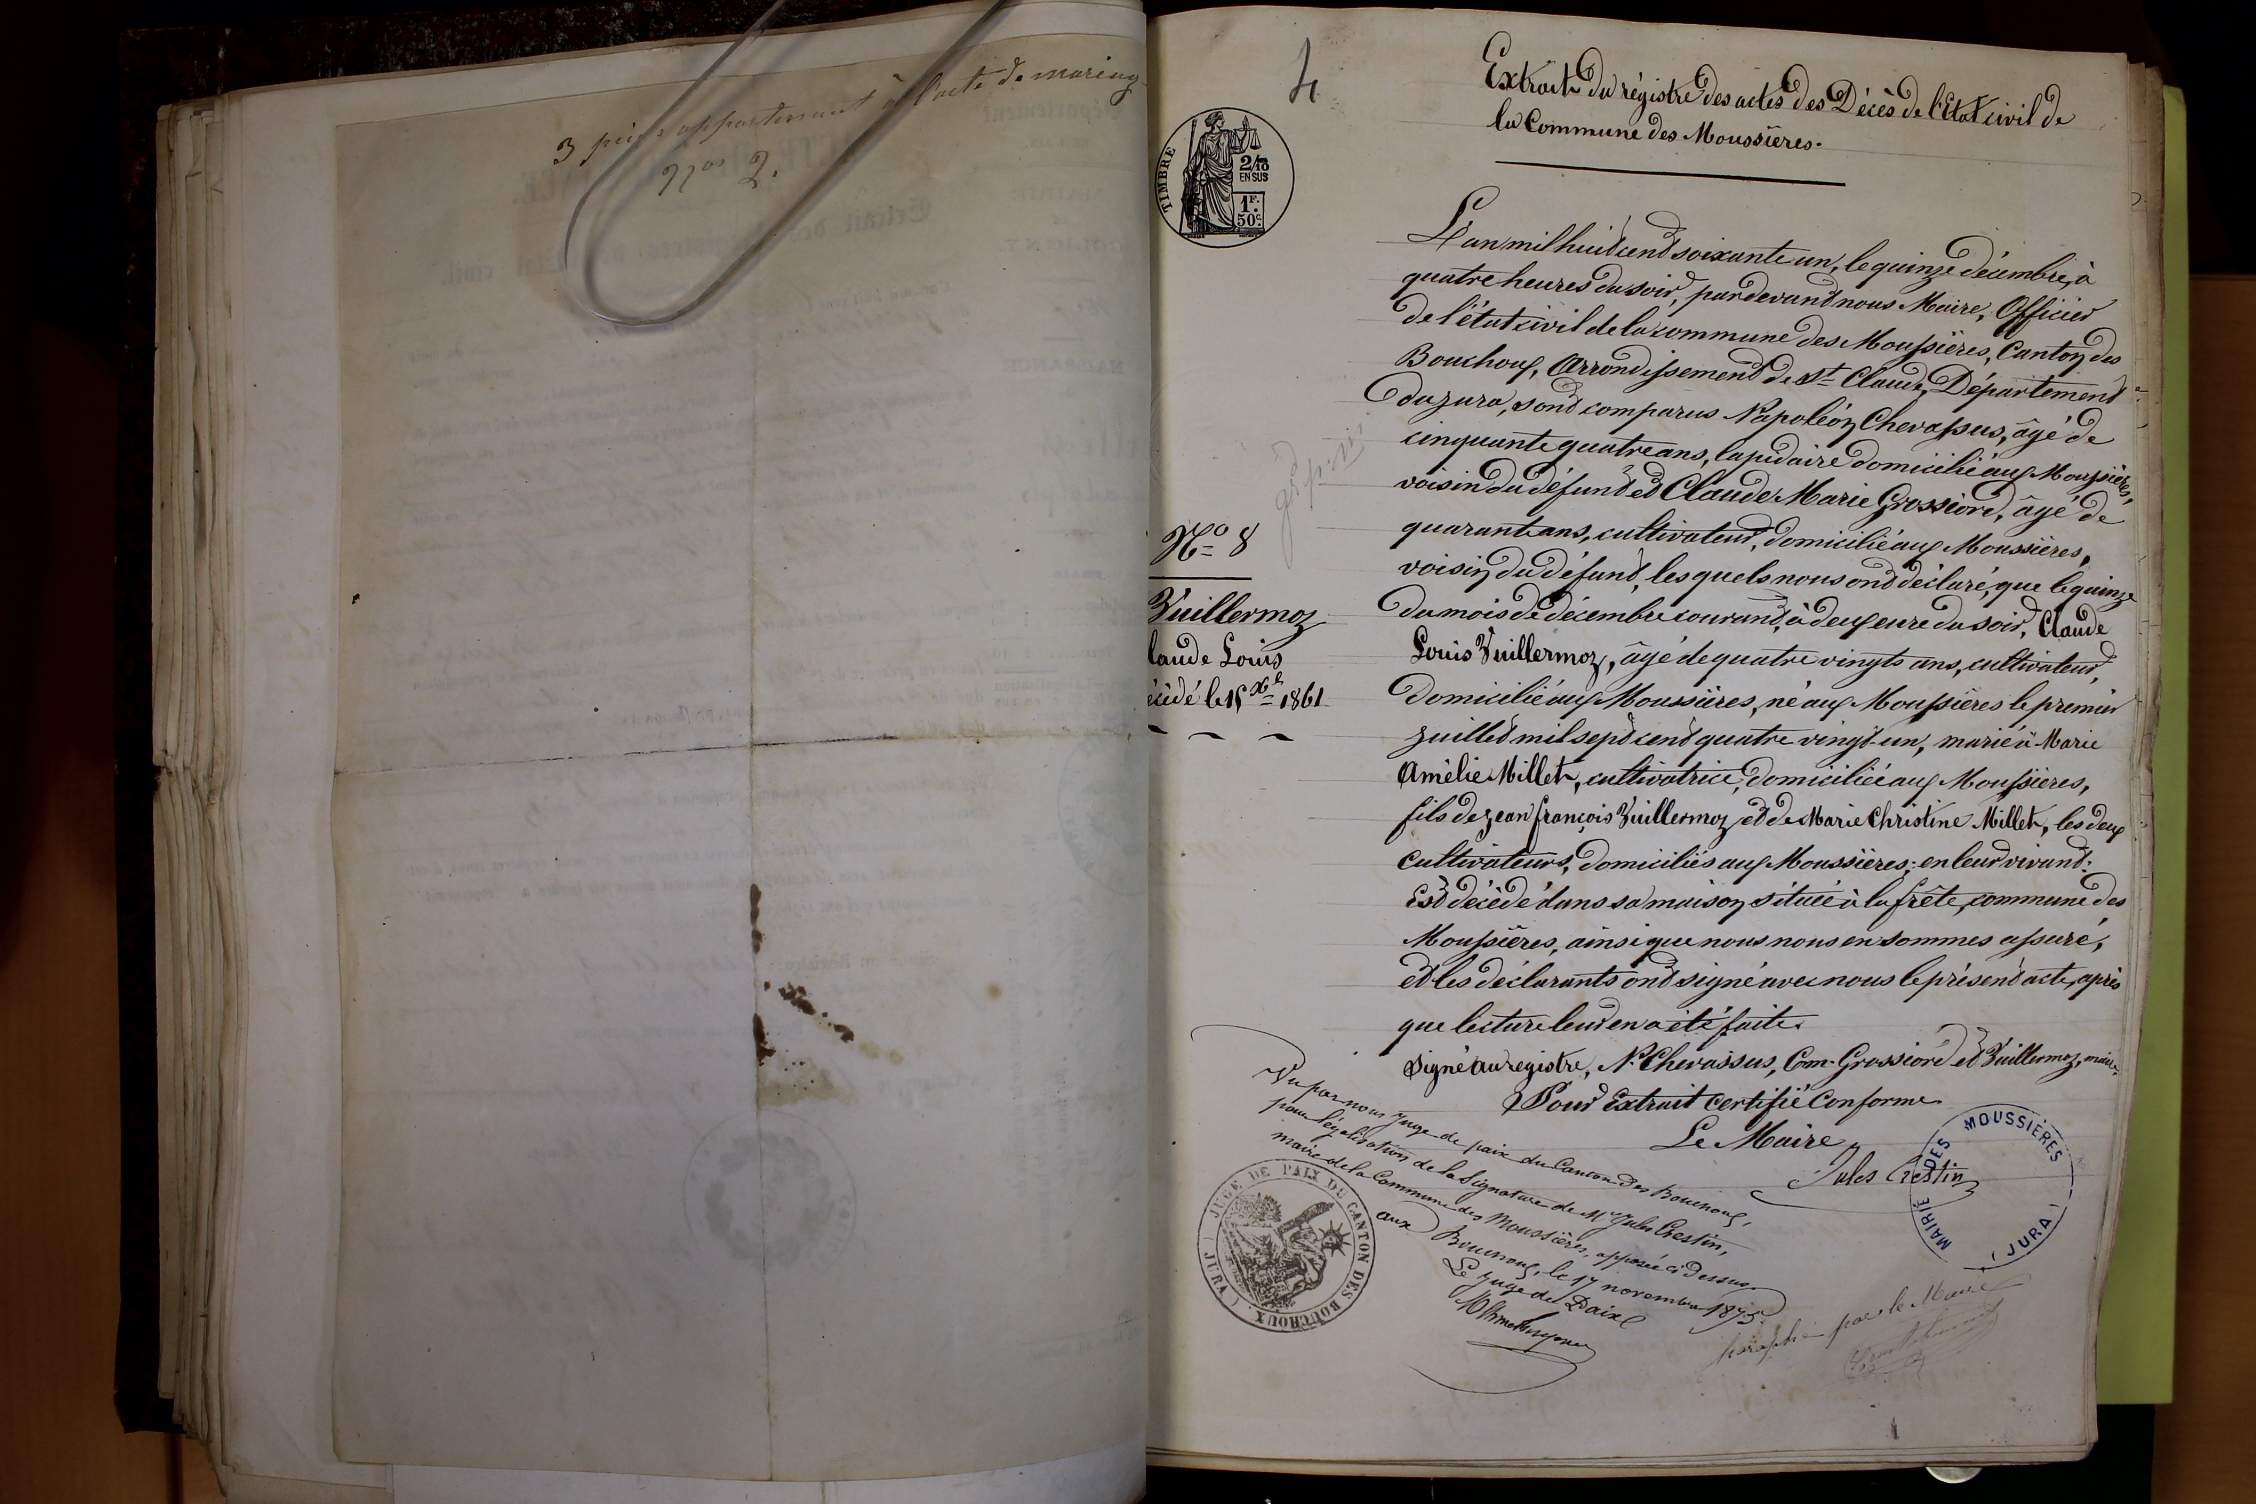 3 pièces appartenant à l'acte de mariag
Nos 2.
4
TIMBRE
2/10
EN SUS
1F.
50c.
Extrait du régistre des actes des Décès de l'Etat civil de
la Commune des Moussières.
L'an mil huit cent soixante un, le quinze décembre, à
quatre heures du soir, pardevant nous Maire, Officier
de l'état civil de la commune des Moussières, Canton des
Bouchoux, Arrondissement de St Claude, Département
du jura, sont comparus Napoléon Chevassus, âgé de
cinquante quatre ans, lapidaire domicilié aux Moussières,
voisin du défunt et Claude Marie Grossiord, âgé de
quarante ans, cultivateur, domicilié aux Moussières,
voisin du défunt, lesquels nous ont déclaré, que le quinze
du mois de décembre courant, à deux eure du soir, Claude
Louis Vuillermoz, âgé de quatre vingts ans, cultivateur,
domicilié aux Moussières, né aux Moussières le premier
juillet mil sept cent quatre vingt-un, marié à Marie
Amélie Millet, cultivatrice, domiciliée aux Moussières,
fils de jean françois Vuillermoz et de Marie Christine Millet, les deux
cultivateurs, domiciliés aux Moussières, en leur vivant.
Est décédé dans sa maison située à la frête, commune des
Moussières, ainsi que nous nous en sommes assuré,
et les déclarants ont signé avec nous le présent acte, après
que lecture leur en a été faite.
Signé au registre, N. Chevassus, Cm. Grossiord et Vuillermoz, maire.
Pour Extrait certifié Conforme
Le Maire
Jules Crestin
No 8
Vuillermoz
laude Louis
écédé le 15 Xbre 1861
MAIRIE DES MOUSSIÈRES
(JURA)
Vu par nous juge de paix du Canton des Bouchoux,
pour légalisation de la Signature de Mr Jules Crestin,
maire de la Commune des Moussières, apposée ci dessus.
aux Bouchoux, le 17 novembre 1875.
Le juge de Paix
JUGE DE PAIX DU CANTON DES BOUCHOUX. (JURA)
paraphé par le Maire